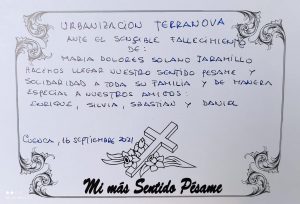 URBANIZACION TERRANOVA
ANTE EL SENSIBLE FALLECIMIENTO
DE:
MARIA DOLORES SOLANO JARAMILLO
HACEMOS LLEGAR NUESTRO SENTIDO PESAME Y
SOLIDARIDAD A TODA SU FAMILIA Y DE MANERA
ESPECIAL A NUESTROS AMIGOS:
ENRIQUE, SILVIA, SBASTIAN Y DANIEL
CUENCA, 16 SEPTIEMBRE 2021
Mi más Sentido Pésame